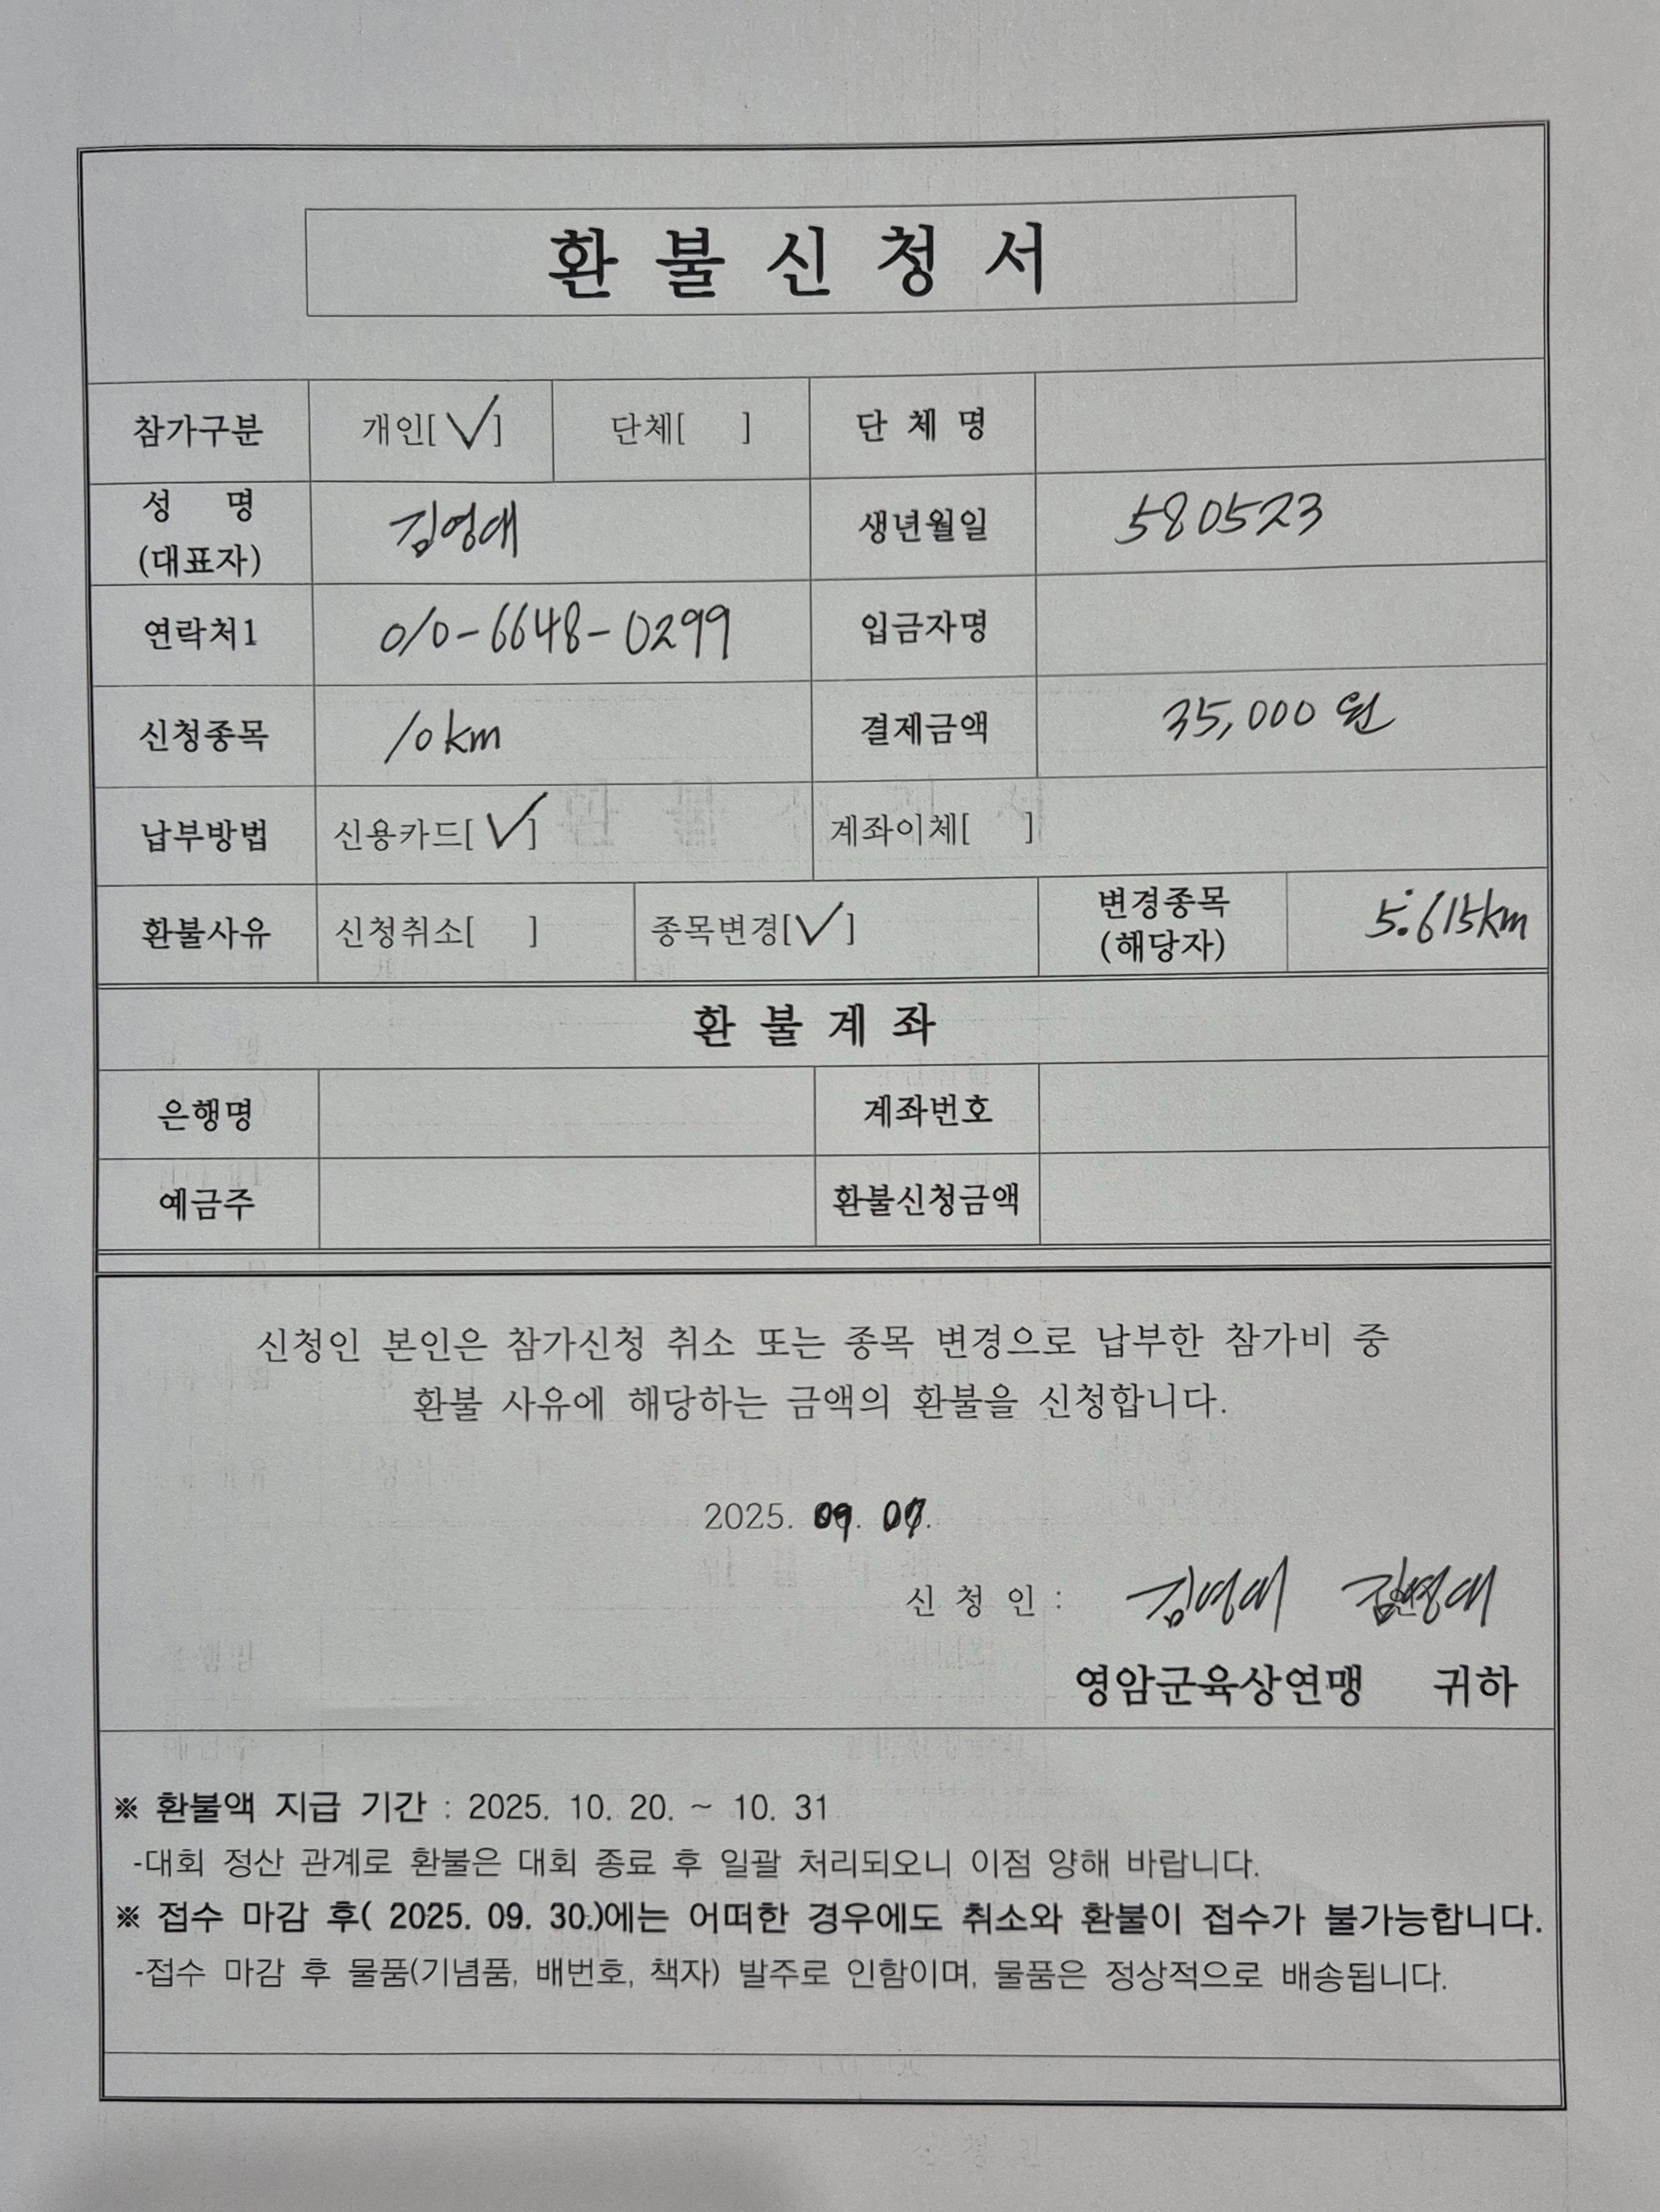 환 불 신 청 서
참가구분 개인[ ✓ ] 단체[ ] 단 체 명
성 명 (대표자) 김영대 생년월일 580523
연락처1 010-6648-0299 입금자명
신청종목 10km 결제금액 35,000 원
납부방법 신용카드[ ✓ ] 계좌이체[ ]
환불사유 신청취소[ ] 종목변경[ ✓ ] 변경종목 (해당자) 5.615km
환 불 계 좌
은행명 계좌번호
예금주 환불신청금액
신청인 본인은 참가신청 취소 또는 종목 변경으로 납부한 참가비 중
환불 사유에 해당하는 금액의 환불을 신청합니다.
2025. 09. 07.
신 청 인 : 김영대 김영대
영암군육상연맹 귀하
※ 환불액 지급 기간 : 2025. 10. 20. ~ 10. 31
-대회 정산 관계로 환불은 대회 종료 후 일괄 처리되오니 이점 양해 바랍니다.
※ 접수 마감 후( 2025. 09. 30.)에는 어떠한 경우에도 취소와 환불이 접수가 불가능합니다.
-접수 마감 후 물품(기념품, 배번호, 책자) 발주로 인함이며, 물품은 정상적으로 배송됩니다.